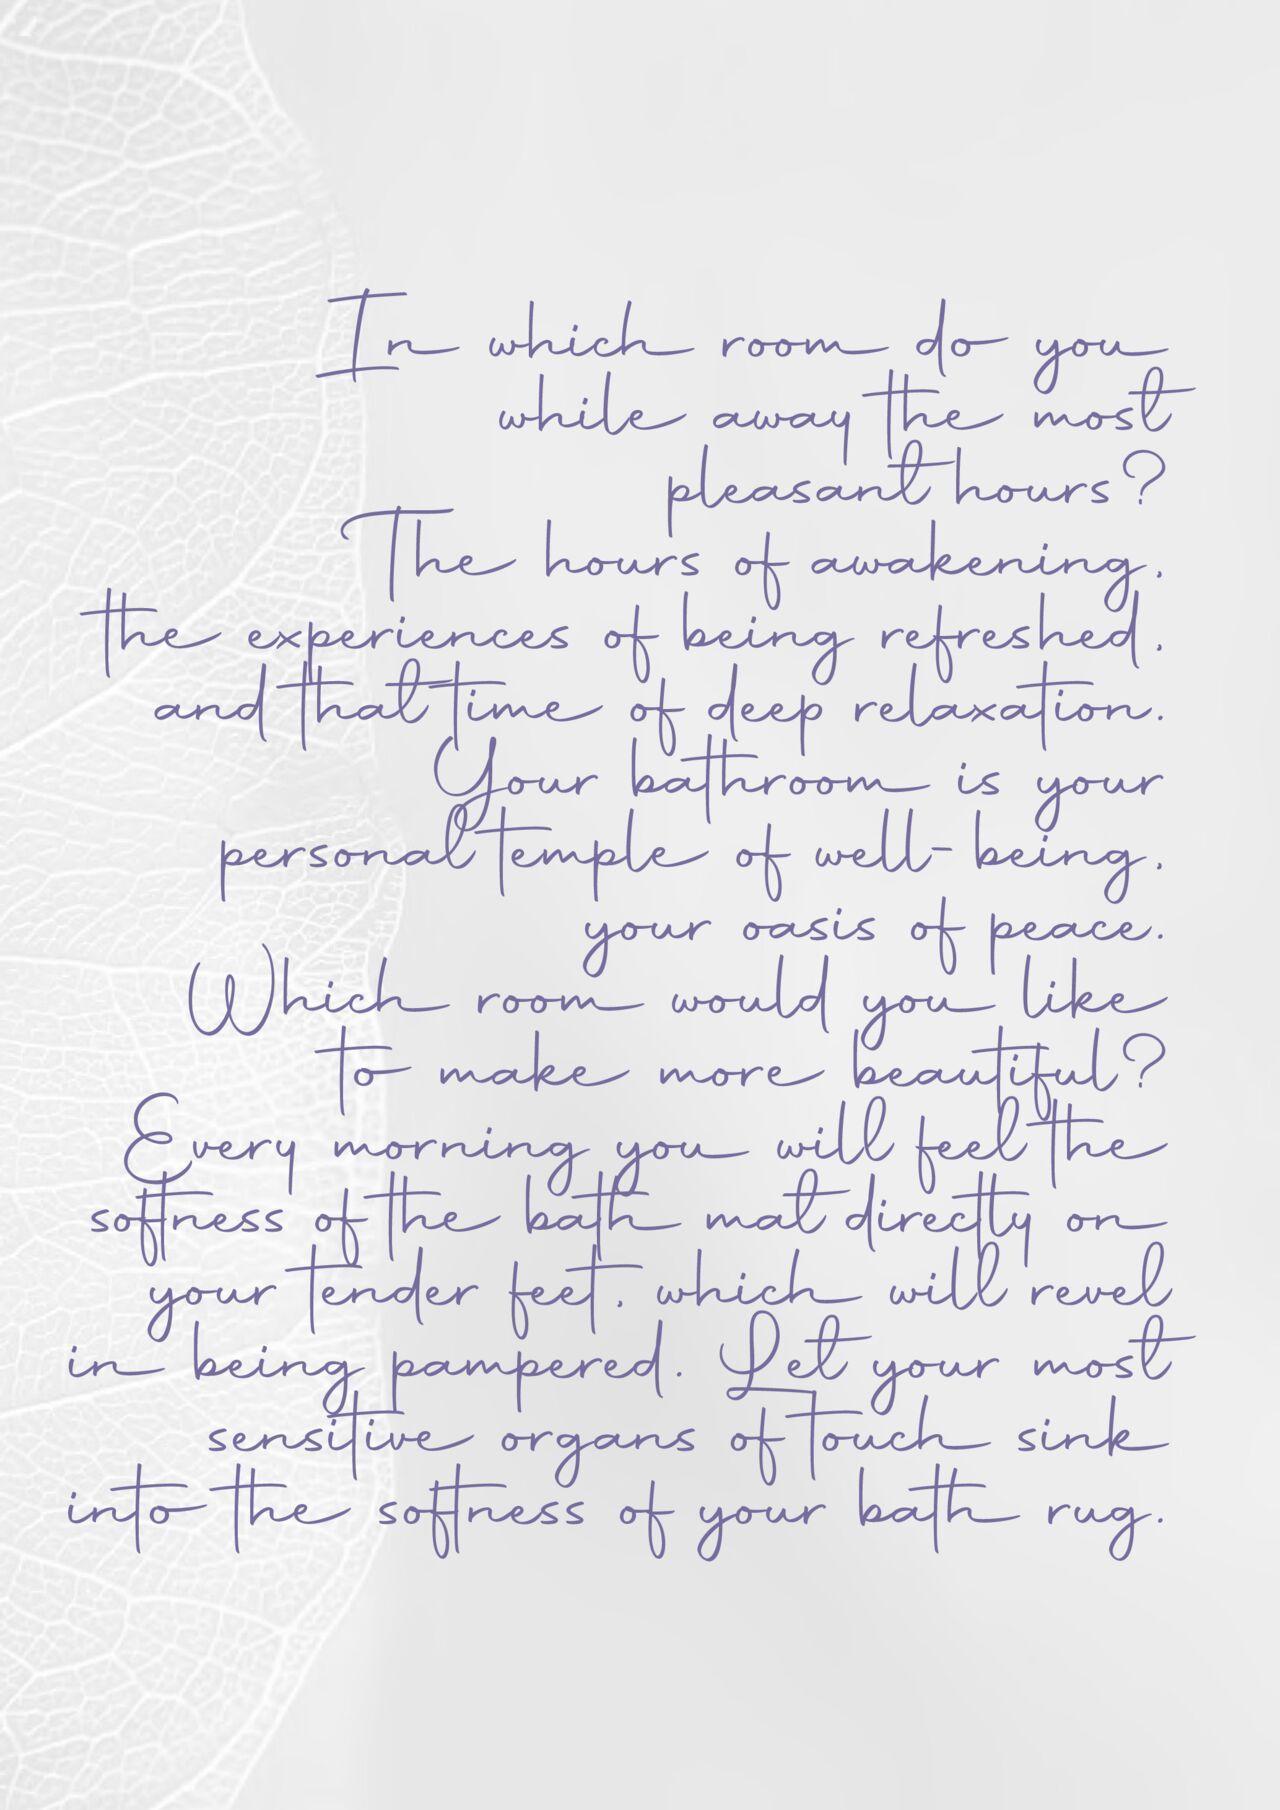 In which room do you
while away the most
pleasant hours?
The hours of awakening,
the experiences of being refreshed,
and that time of deep relaxation.
Your bathroom is your
personal temple of well-being,
your oasis of peace.
Which room would you like
to make more beautiful?
Every morning you will feel the
softness of the bath mat directly on
your tender feet, which will revel
in being pampered. Let your most
sensitive organs of touch sink
into the softness of your bath rug.